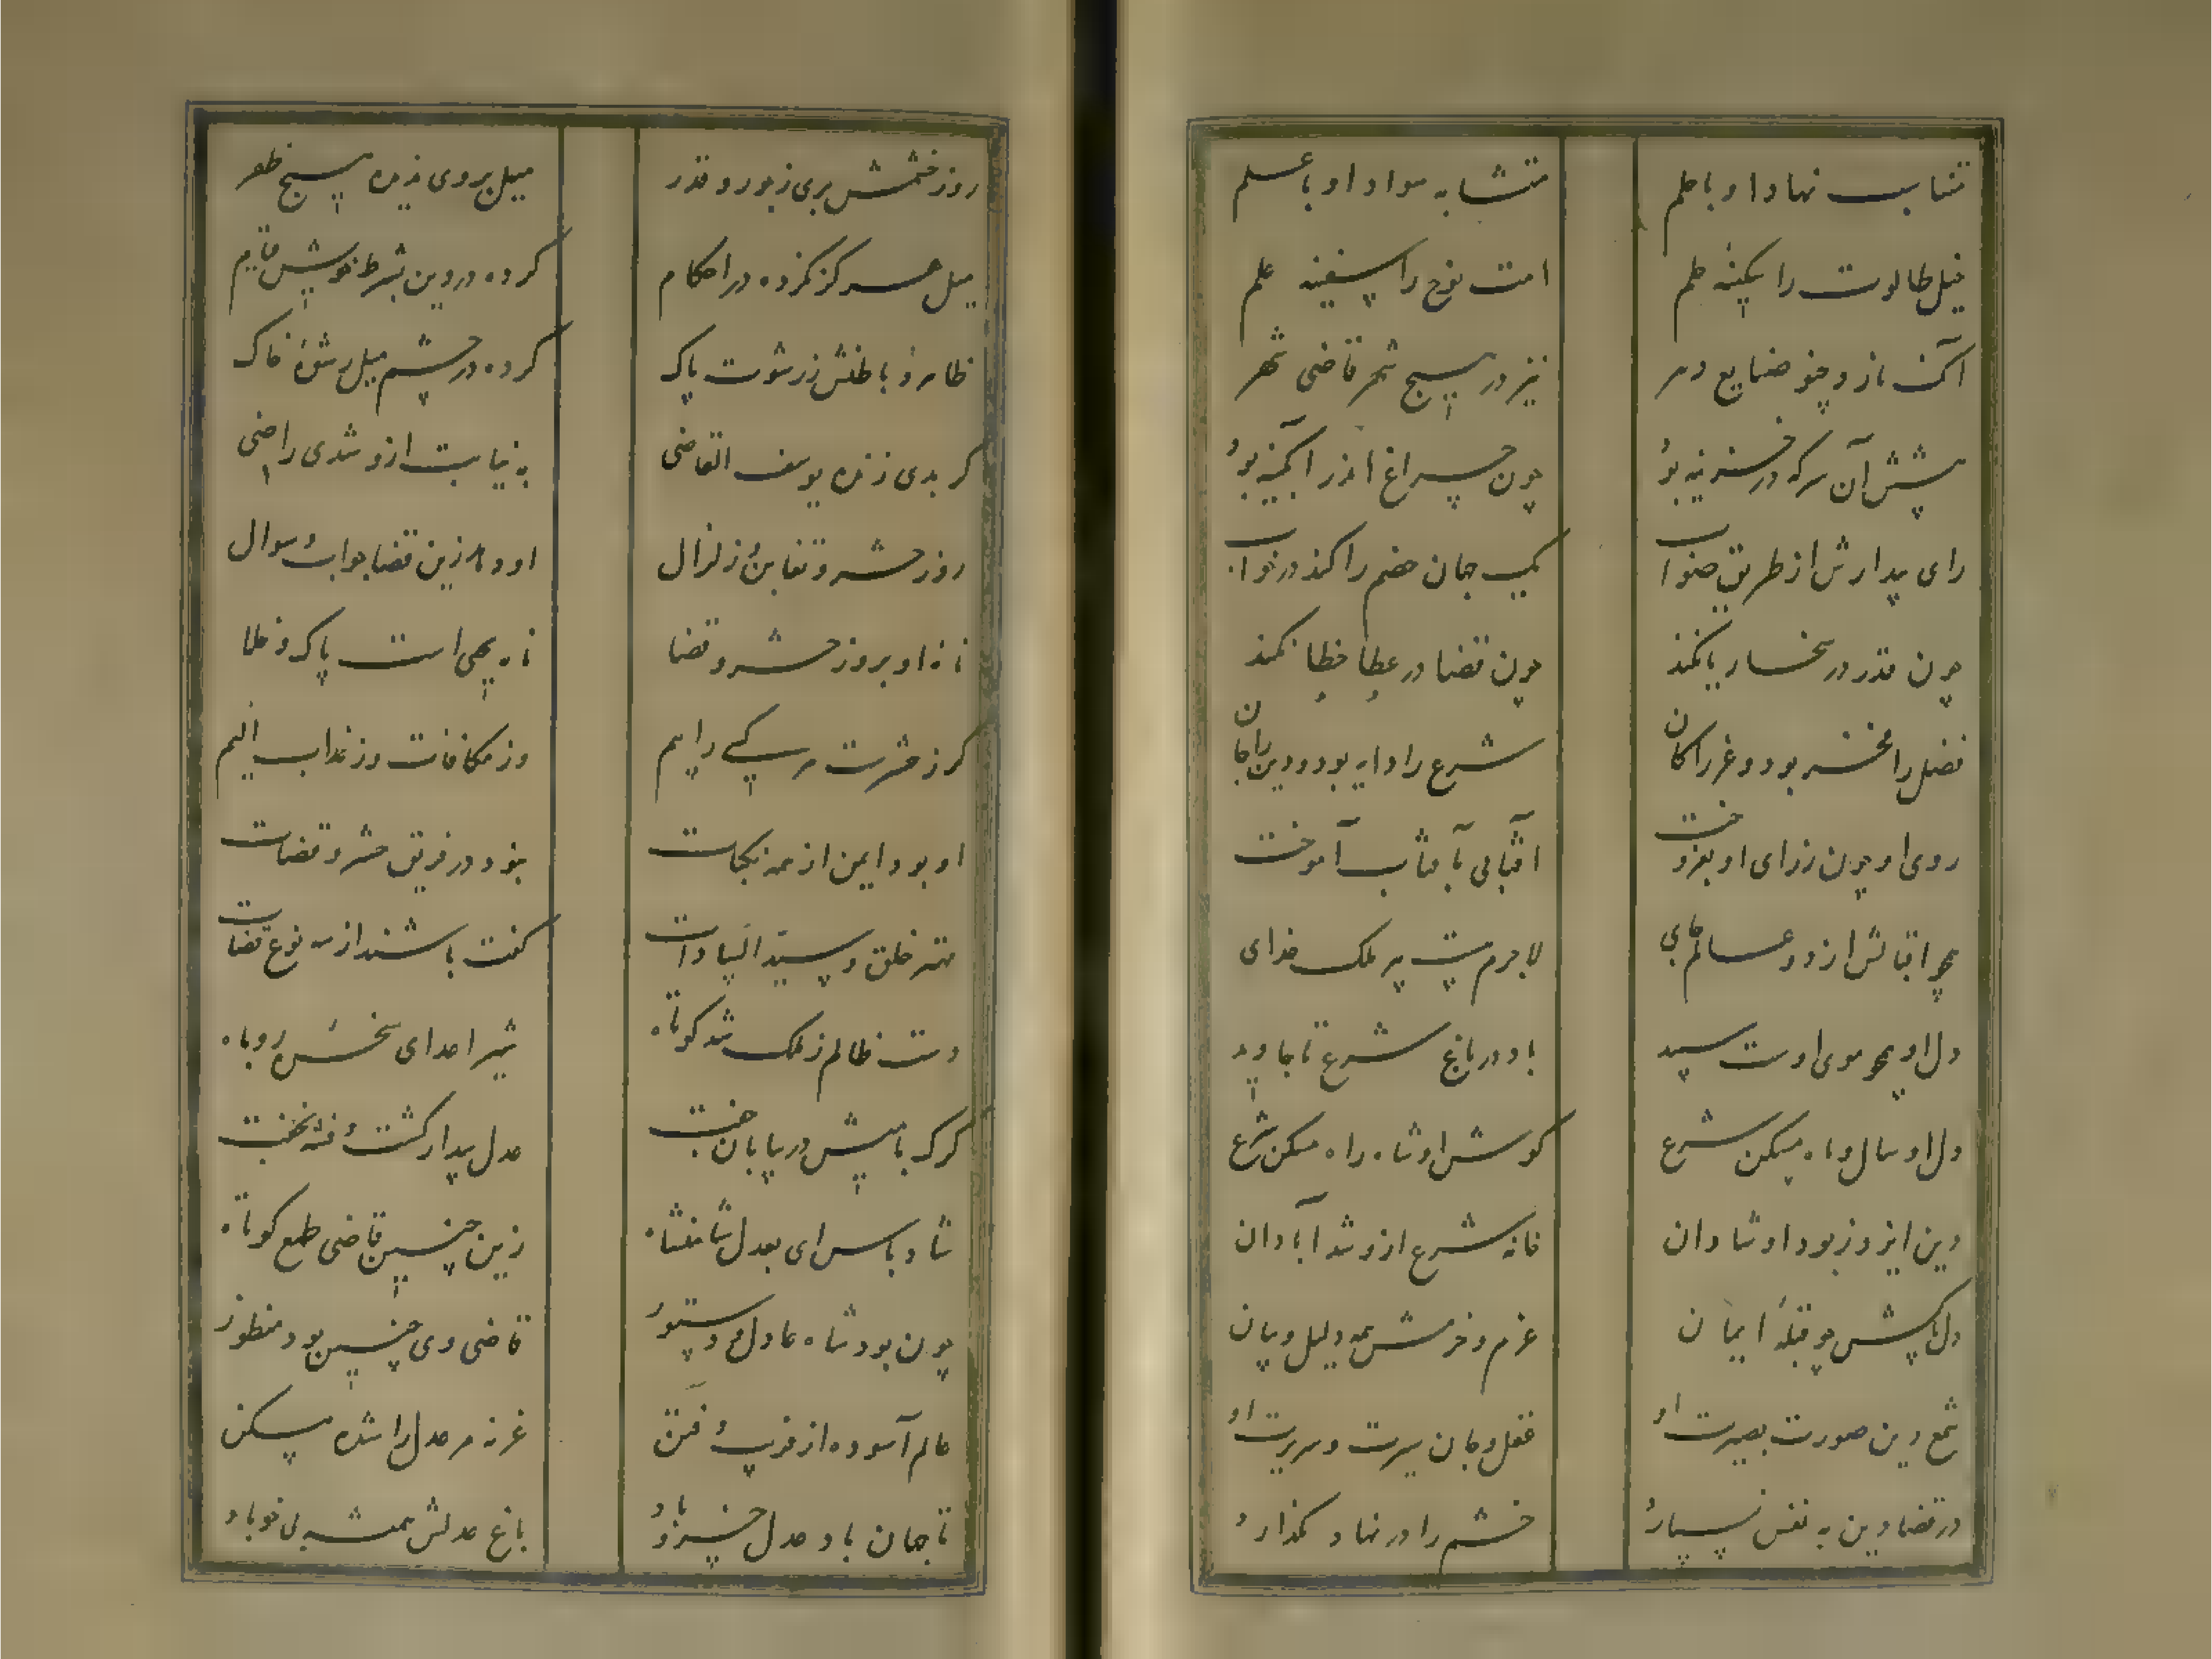 متناسب نهاد او با حلم
متشابه سواد او با علم
خیل طالوت را سکینه حلم
امت نوح را سفینه علم
آنک نازد چو صنایع دهر
نیز در هیچ شهر قاضی شهر
پیشش آن سر که در خزینه بود
چون چراغ اندر آبگینه بود
رای بیدارش از طریق صواب
یک جهان خصم را کند در خواب
چون قدر در سخا ریا نکند
چون قضا در عطا خطا نکند
فضل را مخبر بود و عز را کان
شرع را دایه بود و دین را جان
روی او چون ز رای او بفروخت
آفتابی بآفتاب آموخت
چو اقبالش از دو عالم جای
لاجرم پیر ملک خدای
دل او همچو موی اوست سپید
باد در باغ شرع تا جاوید
دل او سال و ماه مسکن شرع
گوش او شاه راه مسکن شرع
دین ایزد زبود او شادان
خانه شرع ازو شد آبادان
دل پاکش چو قبله ایمان
عزم و حزمش همه دلیل و بیان
شمع دین صورت بصیرت او
عقل و جان سیرت و سریرت او
در قضا دین به نفس نسپارد
خشم را در نهاد نگذارد
روز خشمش بری ز زور و قدر
میل بر وی ندیده هیچ ظفر
میل هرگز نکرده در احکام
کرده در دین بشرط خویش قیام
ظاهر و باطنش ز رشوت پاک
کرده در چشم میل رشوه خاک
گر بدی زنده یوسف القاضی
به نیابت ازو شدی راضی
روز حشر و تغابن و زلزال
او دهد زین قضا جواب و سوال
نامه او بروز حشر و قضا
نامه یحیی است پاک و خطا
گر ز حشرت هر کسی را بیم
وز مکافات وز عذاب الیم
او بود ایمن از همه نکبات
بنود در فریق حشر و قضات
مهتر خلق و سید السادات
گفت باشند از سه نوع قضات
دست ظالم ز ملک شد کوتاه
شیر اعدای سخنش روباه
گرگ با میش در بیابان خفت
عدل بیدار گشت و فتنه بخفت
شاد باش ای بعدل شاهنشاه
زین چنین قاضی طمع کوتاه
چون بود شاه عادل و دستور
قاضی وی چنین بود منظور
عالم آسوده از فریب و فتن
غزنه مر عدل را شده مسکن
تا جهان باد عدل خسرو باد
باغ عدلش همیشه بی خو باد